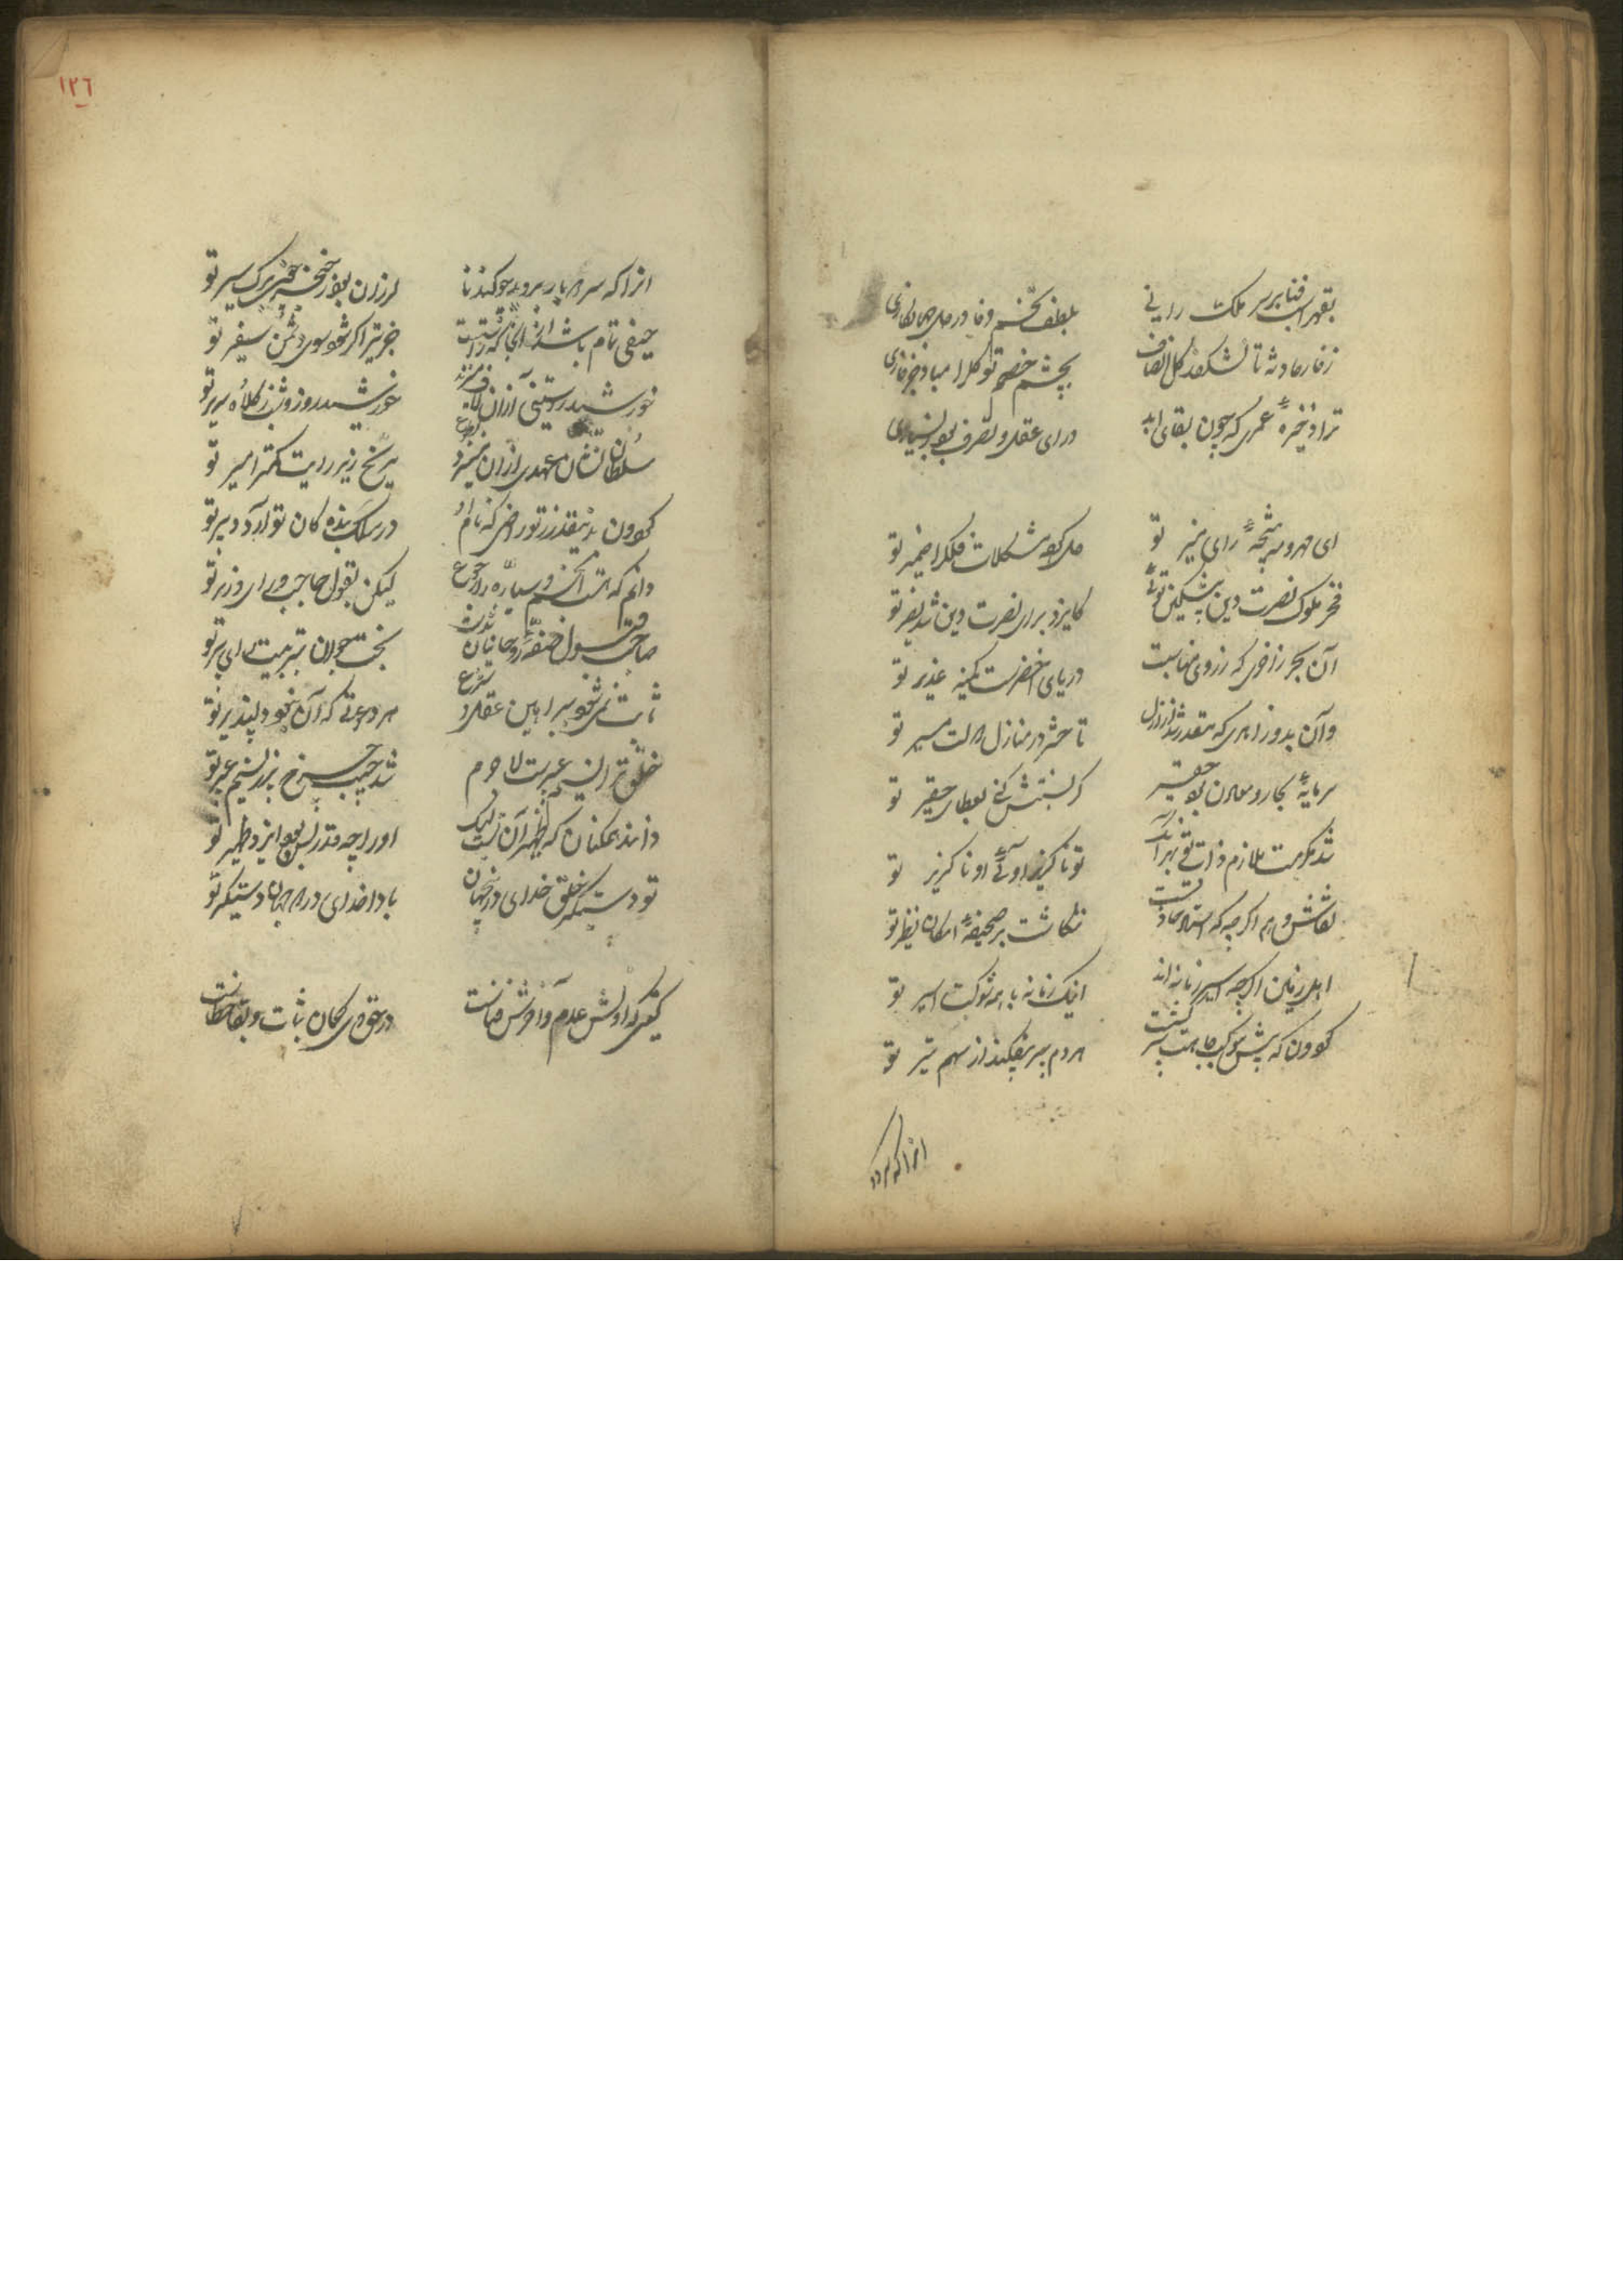 بقهر اسب فنا بر سر ملک رانی
بلطف تخم وفا در دل جهان کاری
ز خار حادثه تا نشکفد گل انصاف
بچشم خصم تو گل را مباد جز خاری
ترا ذخیرهٔ عمری که چون بقای ابد
ورای عقل و تصرف بود ز بسیاری
ای مهر و سپهر نتیجهٔ رای منیر تو
حل کرده مشکلات فلک را ضمیر تو
فخر ملوک نصرت دین پیشکین توئی
کایزد برای نصرت دین شد نصیر تو
آن بحر زاخری که ز روی مهابت
دریای اخضرست کمینه غدیر تو
وآن بدر زاهری که مقدر شد از ازل
تا حشر در منازل دولت مسیر تو
سرمایهٔ بحار و معادن بود حقیر
گر نسبتش کنی بعطای حقیر تو
شد مکرمت ملازم ذات تو بهر آنک
تو ناگزیر اوئی و او ناگزیر تو
نقاش وهم اگر چه که استاد حاذقست
ننگاشت بر صحیفهٔ امکان نظیر تو
اهل زمین اگر چه اسیر زمانه اند
اینک زمانه با همه شوکت اسیر تو
گردون که پیش موکب جاهت سپر گشت
هر دم سپر بیفکند از سهم تیر تو
انرا که سر
انرا که سر
لرزان بود ز خنجر چون برگ بیر تو
حیفی تمام باشد از آنجا که راستیست
جز تیر اگر شود سوی دشمن سفیر تو
خورشید راستینی از آن لاف میزند
خورشید روز و شب ز کلاه سریر تو
سلطان نشان عهدی از آن میسزد
مریخ زیر رایت کمتر امیر تو
گردون بدینقدر ز تو راضی که نام او
در سلک بندگان تو آرد دبیر تو
دانم که هست انجم و سیاره را رجوع
لیکن بقول حاجب و رای وزیر تو
صاحب قبول صفهٔ روحانیان شدست
بخت جوان بتربیت رای پیر تو
ثابت نمی‌شود ببراهین عقل و شرع
هر دعوئی که آن نبود دلپذیر تو
خلق ترا نسیم عبیرست لاجرم
شد جیب چرخ پر ز نسیم عبیر تو
دانند همکنان که ظهیر آن تست لیک
او را چه قدر بس بود ایزد ظهیر تو
تو دستگیر خلق خدای در جهان
بادا خدای در دو جهان دستگیر تو
گیتی که اولش عدم و آخرش فناست
در حق وی گمان ثبات و بقا خطاست
١٢٦